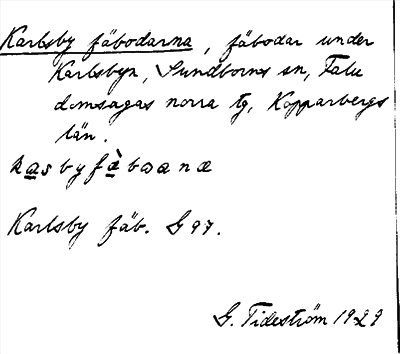 Karlsby fäbodarna, fäbodar under
Karlsbyn, Sundborns sn, Falu
domsagas norra tg, Kopparbergs
län.
kasbyfæ̀bɷanæ
Karlsby fäb. G 97.
G. Tideström 1929